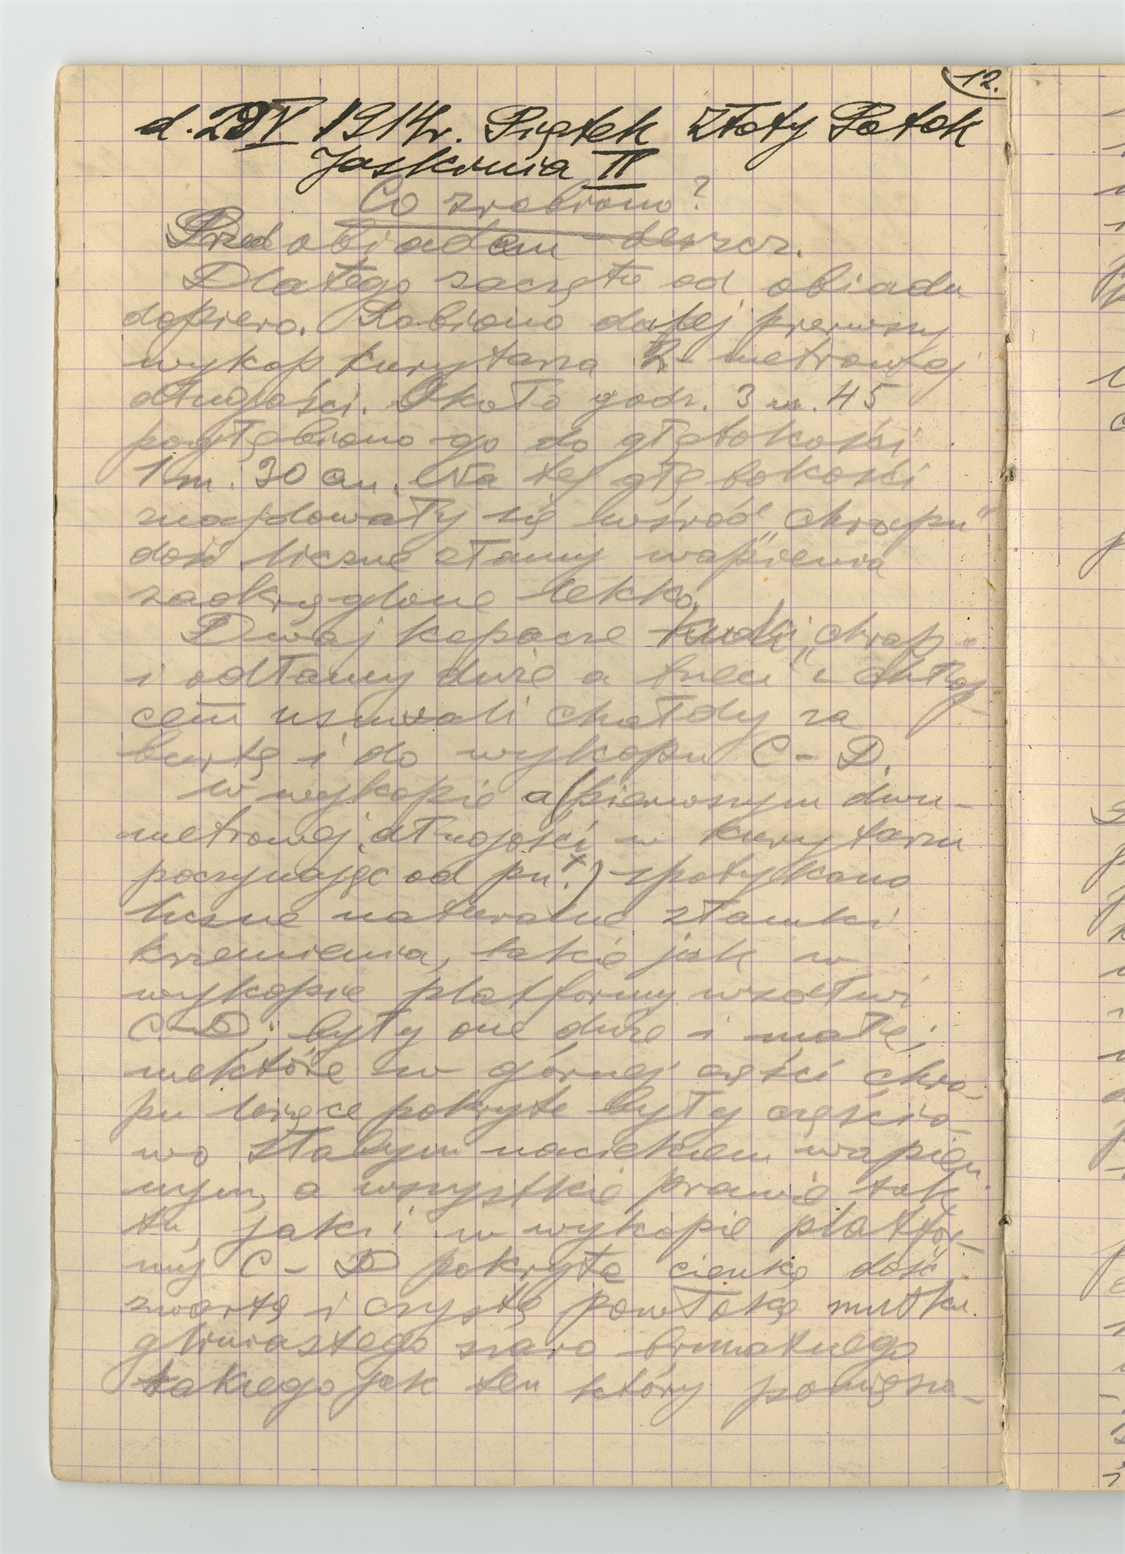 12.
d. 29 V 1914r. Piątek Złoty Potok
Jaskinia II
Co zrobiono?
Przed obiadem – deszcz.
Dlatego zaczęto od obiadu
dopiero. Robiono dalej pierwszy
wykop kurytarza 2 metrowej
długości. Około godz. 3 m. 45
pogłębiono go do głębokości
1 m. 30 cm. Na tej głębokości
znajdowały się wśród "chrapu"
dość liczne złamy wapienia
zaokrąglone lekko.
Dwaj kopacze "chrap"
i odłamy duże a trzeci z chłop-
cem usuwali hałdy za
burtę i do wykopu C – D.
W wykopie a (pierwszym dwu-
metrowej długości w kurytarzu
poczynając od pn.x) spotykano
liczne naturalne złamki
krzemienia, takie jak w
wykopie platformy wzdłuż
C–D; były one duże i małe;
niektóre w górnej części chra-
pu leżące pokryte były częścio-
wo słabym naciekiem wapien-
nym, a wszystkie prawie tak
tu, jak i w wykopie platfor-
my C – D pokryte cienką dość
zwartą i czystą powłoką mułku
gliniastego szaro brunatnego
takiego jak ten który pomiesza-